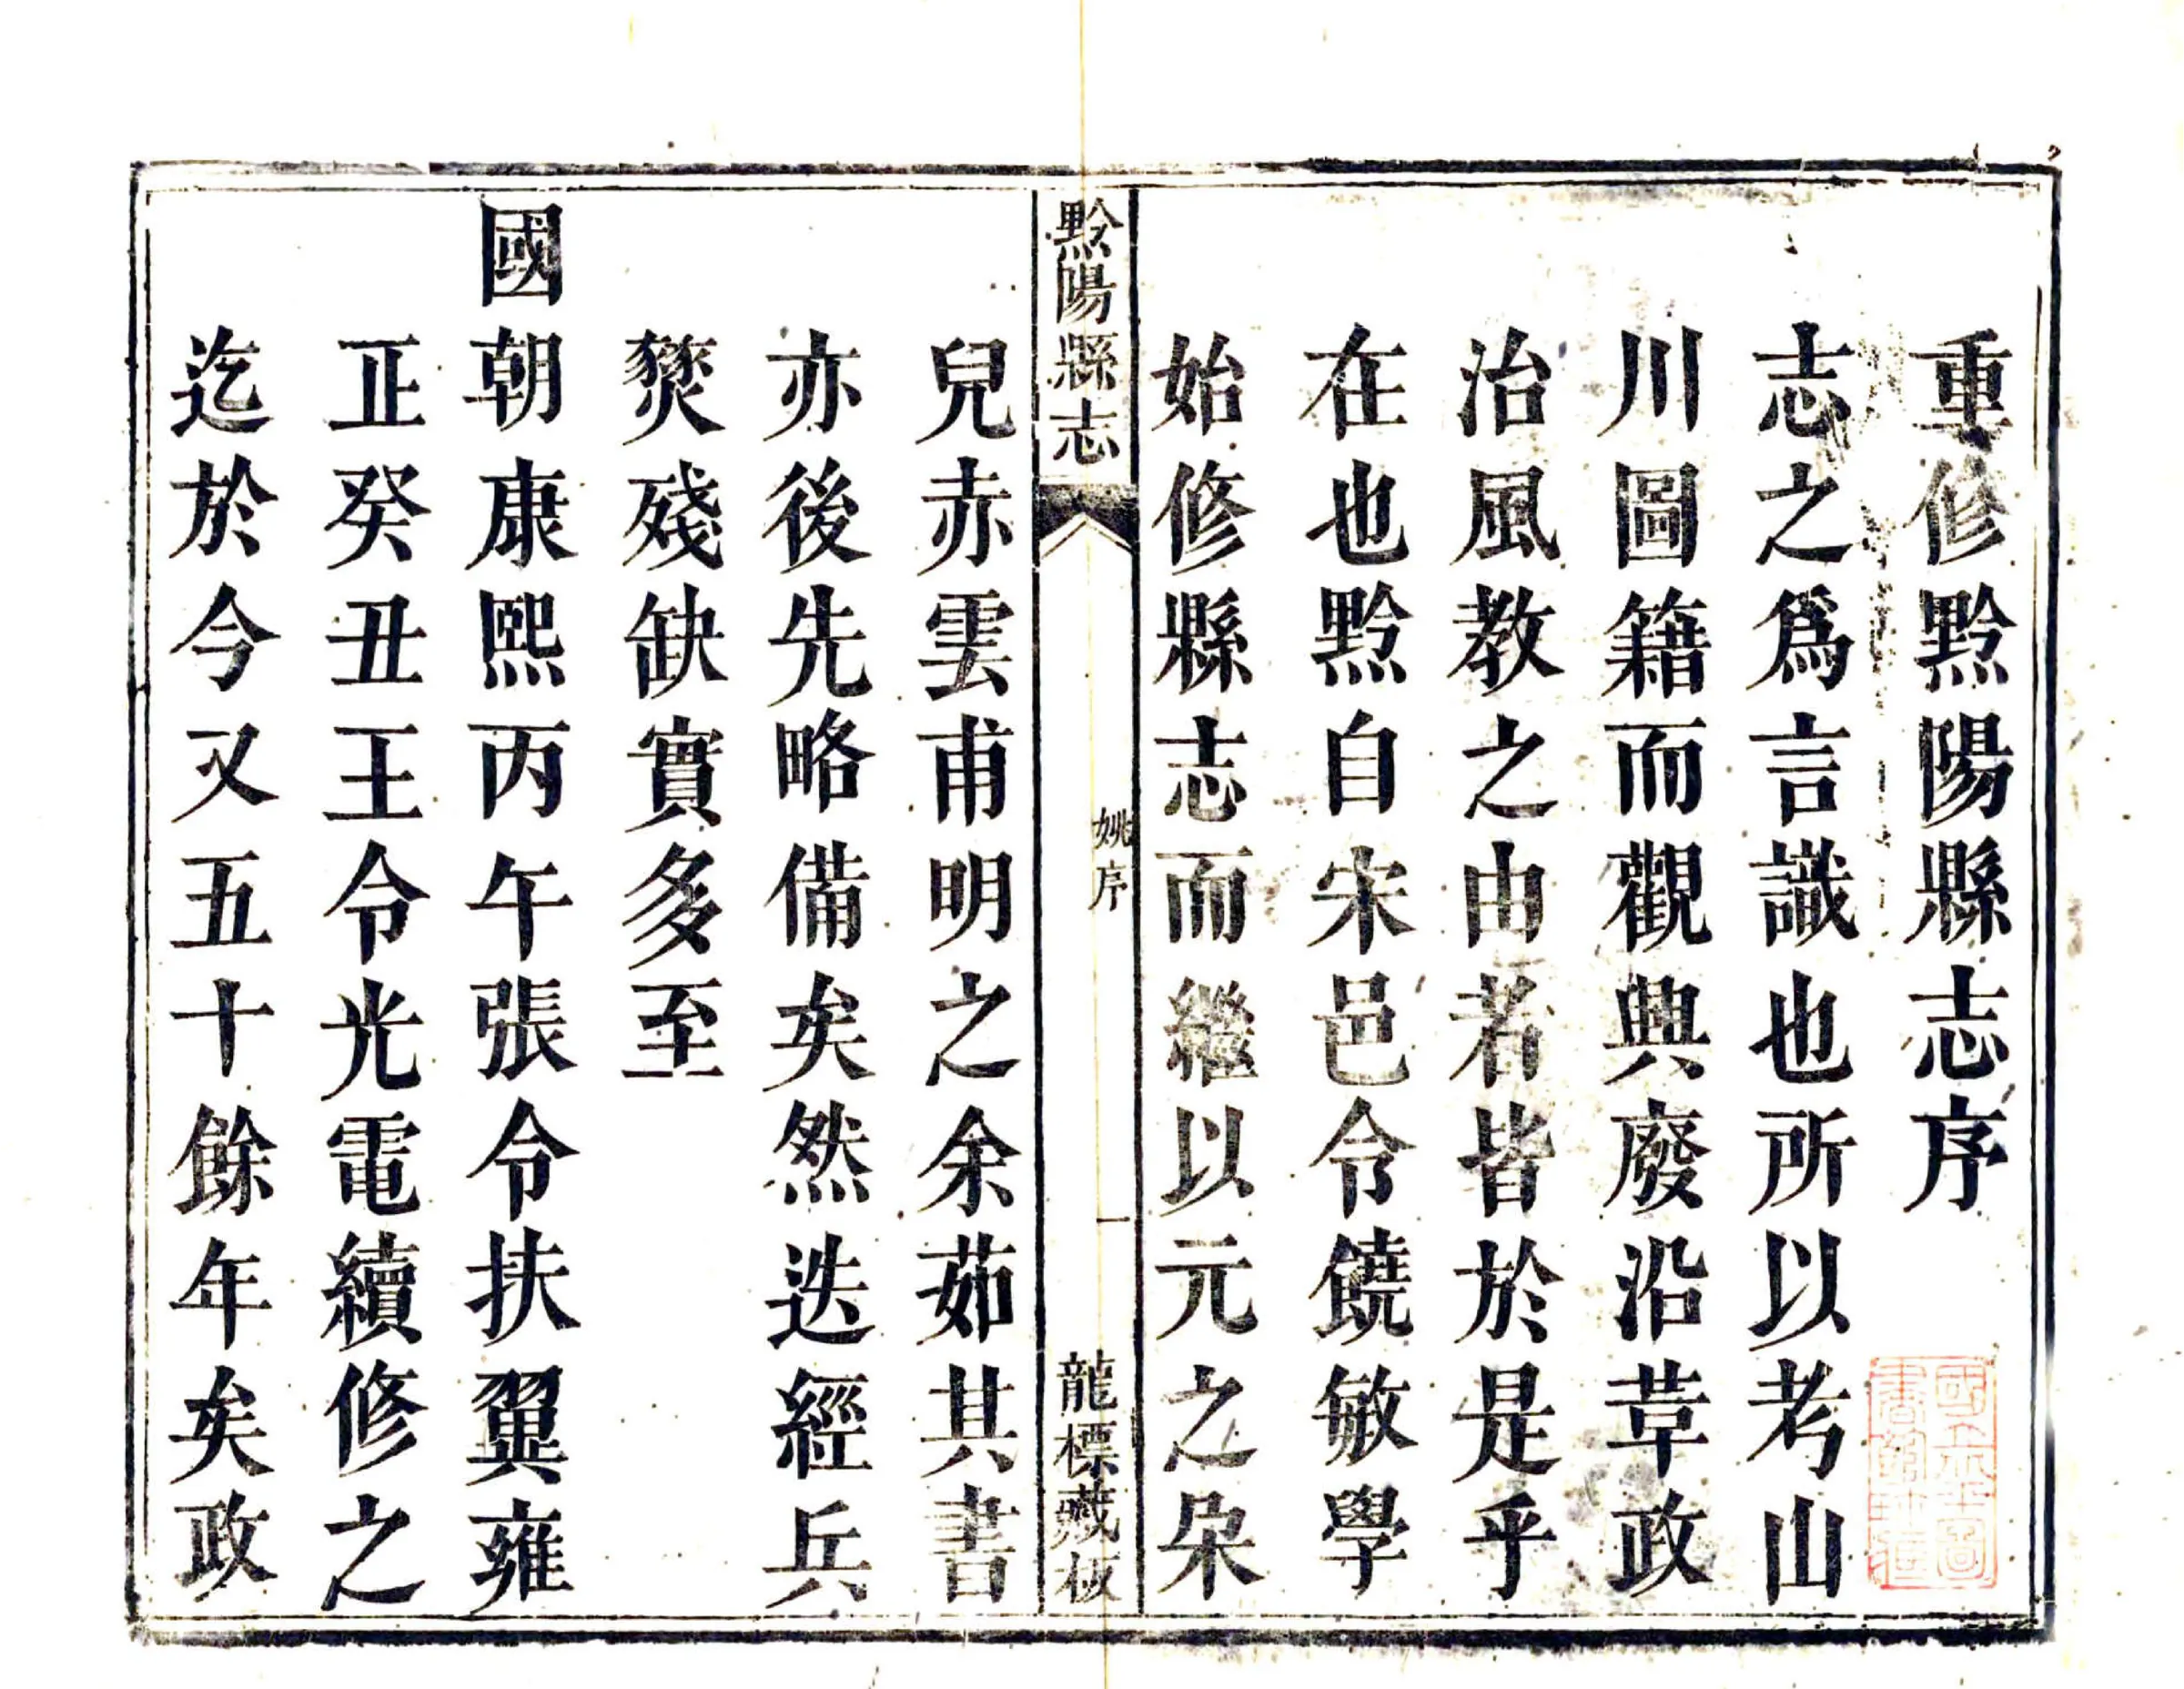 重修黔陽縣志序
志之爲言識也所以考山
川圖籍而觀興廢沿革政
治風教之由者皆於是乎
在也黔自宋邑令饒敏學
始修縣志而繼以元之朵
黔陽縣志
姚序
一
龍標藏板
兒赤雲甫明之余茹其書
亦後先略備矣然迭經兵
燹殘缺實多至
國朝康熙丙午張令扶翼雍
正癸丑王令光電續修之
迄於今又五十餘年矣政